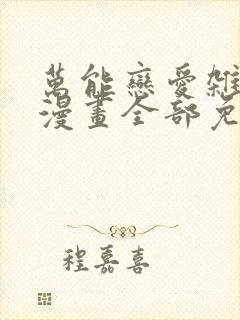 萬能戀愛雜
漫畫全部免
程嘉喜